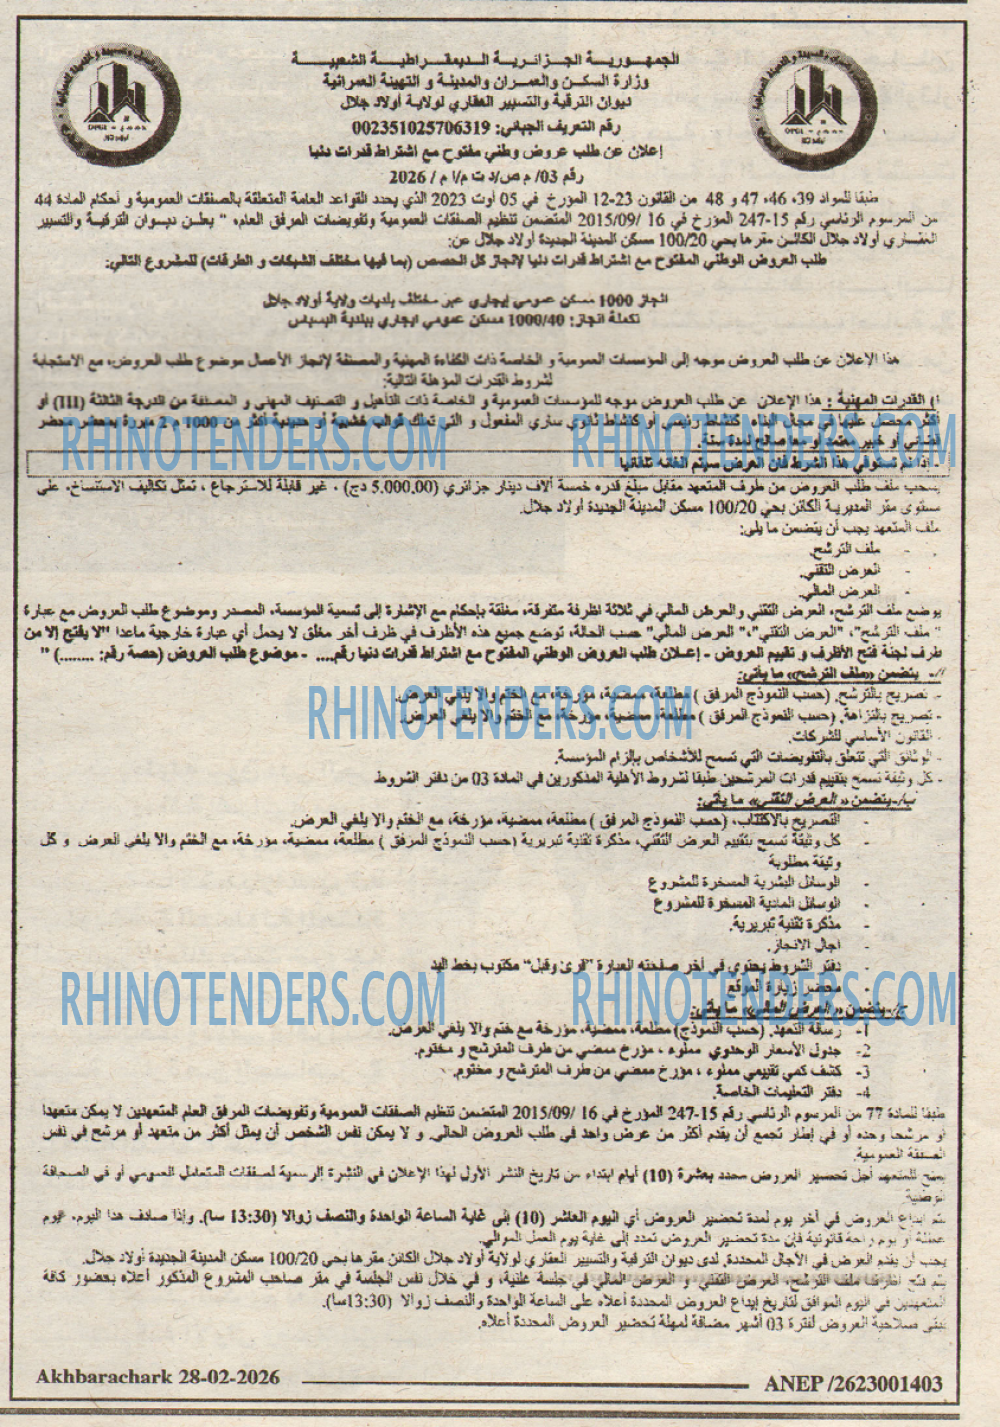 الجمهورية الجزائرية الديمقراطية الشعبية
وزارة السكن والعمران والمدينة و التهيئة العمرانية
ديوان الترقية والتسيير العقاري لولاية أولاد جلال
رقم التعريف الجبائي: 002351025706319
إعلان عن طلب عروض وطني مفتوح مع اشتراط قدرات دنيا
رقم 03/ م ص/د ت م/ا م / 2026
طبقا للمواد 39، 46، 47 و 48 من القانون 23-12 المؤرخ في 05 أوت 2023 الذي يحدد القواعد العامة المتعلقة بالصفقات العمومية و أحكام المادة 44
من المرسوم الرئاسي رقم 15-247 المؤرخ في 16 /09/ 2015 المتضمن تنظيم الصفقات العمومية وتفويضات المرفق العام، " يعلن ديوان الترقية والتسيير
العقاري أولاد جلال الكائن مقرها بحي 100/20 مسكن المدينة الجديدة أولاد جلال عن:
طلب العروض الوطني المفتوح مع اشتراط قدرات دنيا لإنجاز كل الحصص (بما فيها مختلف الشبكات و الطرقات) للمشروع التالي:
انجاز 1000 مسكن عمومي إيجاري عبر مختلف بلديات ولاية أولاد جلال
تكملة انجاز: 1000/40 مسكن عمومي ايجاري ببلدية البسباس
هذا الإعلان عن طلب العروض موجه إلى المؤسسات العمومية و الخاصة ذات الكفاءة المهنية والمصنفة لإنجاز الأعمال موضوع طلب العروض، مع الاستجابة
لشروط القدرات المؤهلة التالية:
ا) القدرات المهنية : هذا الإعلان عن طلب العروض موجه للمؤسسات العمومية و الخاصة ذات التأهيل و التصنيف المهني و المصنفة من الدرجة الثالثة (III) أو
أكثر محصل عليها في مجال البناء كنشاط رئيسي أو كنشاط ثانوي ساري المفعول و التي تملك قوالب خشبية أو حديدية أكثر من 1000 م 2 مبررة بمحضر محضر
قضائي أو خبير معتمد أو معا صالح لمدة سنة.
- إذا لم تستوفي هذا الشرط فان العرض سيتم الغائه تلقائيا
يسحب ملف طلب العروض من طرف المتعهد مقابل مبلغ قدره خمسة آلاف دينار جزائري (5.000,00 دج) ، غير قابلة للاسترجاع ، تمثل تكاليف الاستنساخ، على
مستوى مقر المديرية الكائن بحي 100/20 مسكن المدينة الجديدة أولاد جلال.
ملف المتعهد يجب أن يتضمن ما يلي:
- ملف الترشح.
- العرض التقني.
- العرض المالي.
يوضع ملف الترشح، العرض التقني والعرض المالي في ثلاثة اظرفة متفرقة، مغلقة بإحكام مع الإشارة إلى تسمية المؤسسة، المصدر وموضوع طلب العروض مع عبارة
" ملف الترشح"، "العرض التقني"، " العرض المالي" حسب الحالة، توضع جميع هذه الأظرف في ظرف أخر مغلق لا يحمل أي عبارة خارجية ماعدا "لا يفتح إلا من
طرف لجنة فتح الأظرف و تقييم العروض - إعلان طلب العروض الوطني المفتوح مع اشتراط قدرات دنيا رقم.... - موضوع طلب العروض (حصة رقم: ........) "
أ/- يتضمن «ملف الترشح» ما يأتي:
- تصريح بالترشح. (حسب النموذج المرفق ) مطلعة، ممضية، مؤرخة، مع الختم والا يلغي العرض.
- تصريح بالنزاهة. (حسب النموذج المرفق ) مطلعة، ممضية، مؤرخة، مع الختم والا يلغي العرض.
- القانون الأساسي للشركات.
- الوثائق التي تتعلق بالتفويضات التي تسمح للأشخاص بإلزام المؤسسة.
- كل وثيقة تسمح بتقييم قدرات المرشحين طبقا لشروط الأهلية المذكورين في المادة 03 من دفتر الشروط
ب/-يتضمن « العرض التقني» ما يأتي:
- التصريح بالاكتتاب، (حسب النموذج المرفق ) مطلعة، ممضية، مؤرخة، مع الختم والا يلغي العرض.
- كل وثيقة تسمح بتقييم العرض التقني، مذكرة تقنية تبريرية (حسب النموذج المرفق ) مطلعة، ممضية، مؤرخة، مع الختم والا يلغي العرض و كل
وثيقة مطلوبة
- الوسائل البشرية المسخرة للمشروع
- الوسائل المادية المسخرة للمشروع
- مذكرة تقنية تبريرية.
- اجال الانجاز.
- دفتر الشروط يحتوي في أخر صفحته العبارة "قرئ وقبل" مكتوب بخط اليد
- محضر زيارة الموقع
ج/-يتضمن « العرض المالي» ما يأتي:
1- رسالة التعهد. (حسب النموذج) مطلعة، ممضية، مؤرخة مع ختم والا يلغي العرض.
2- جدول الأسعار الوحدوي مملوء ، مؤرخ ممضي من طرف المترشح و مختوم.
3- كشف كمي تقييمي مملوء ، مؤرخ ممضي من طرف المترشح و مختوم.
4- دفتر التعليمات الخاصة.
طبقا للمادة 77 من المرسوم الرئاسي رقم 15-247 المؤرخ في 16 /09/ 2015 المتضمن تنظيم الصفقات العمومية وتفويضات المرفق العام المتعهدين لا يمكن متعهدا
أو مرشحا وحده أو في إطار تجمع أن يقدم أكثر من عرض واحد في طلب العروض الحالي. و لا يمكن نفس الشخص أن يمثل أكثر من متعهد أو مرشح في نفس
الصفقة العمومية.
يمنح للمتعهد أجل تحضير العروض محدد بعشرة (10) أيام ابتداء من تاريخ النشر الأول لهذا الإعلان في النشرة الرسمية لصفقات المتعامل العمومي أو في الصحافة
الوطنية.
يتم إيداع العروض في آخر يوم لمدة تحضير العروض أي اليوم العاشر (10) إلى غاية الساعة الواحدة والنصف زوالا (13:30 سا). وإذا صادف هذا اليوم، يوم
عطلة أو يوم راحة قانونية فإن مدة تحضير العروض تمدد إلى غاية يوم العمل الموالي.
يجب أن يقدم العرض في الآجال المحددة، لدى ديوان الترقية والتسيير العقاري لولاية أولاد جلال الكائن مقرها بحي 100/20 مسكن المدينة الجديدة أولاد جلال.
يتم فتح أظرفة ملف الترشح، العرض التقني و العرض المالي في جلسة علنية، و في خلال نفس الجلسة في مقر صاحب المشروع المذكور أعلاه بحضور كافة
المتعهدين في اليوم الموافق لتاريخ إيداع العروض المحددة أعلاه على الساعة الواحدة والنصف زوالا (13:30سا).
تبقى صلاحية العروض لفترة 03 أشهر مضافة لمهلة تحضير العروض المحددة أعلاه.
Akhbarachark 28-02-2026
ANEP /2623001403
RHINOTENDERS.COM
RHINOTENDERS.COM
RHINOTENDERS.COM
RHINOTENDERS.COM
RHINOTENDERS.COM